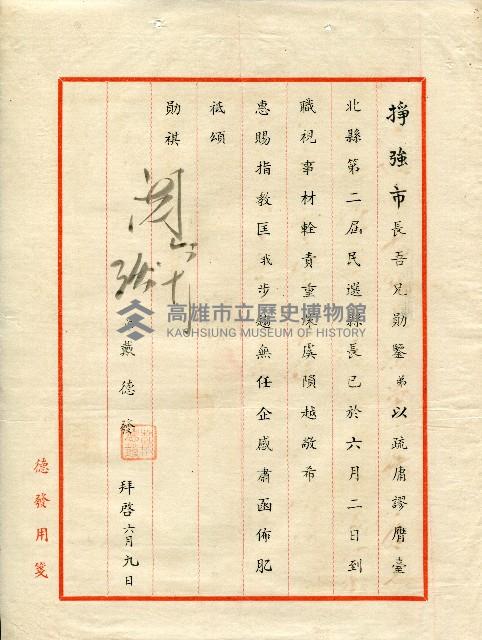 掙強市長吾兄勛鑒弟以疏庸謬膺臺
北縣第二屆民選縣長已於六月二日到
職視事材輇責重深虞隕越敬希
惠賜指教匡我步趨無任企感肅函佈肊
祗頌
勛祺
戴德發
拜啓六月九日
德發用箋
高雄市立歷史博物館
KAOHSIUNG MUSEUM OF HISTORY